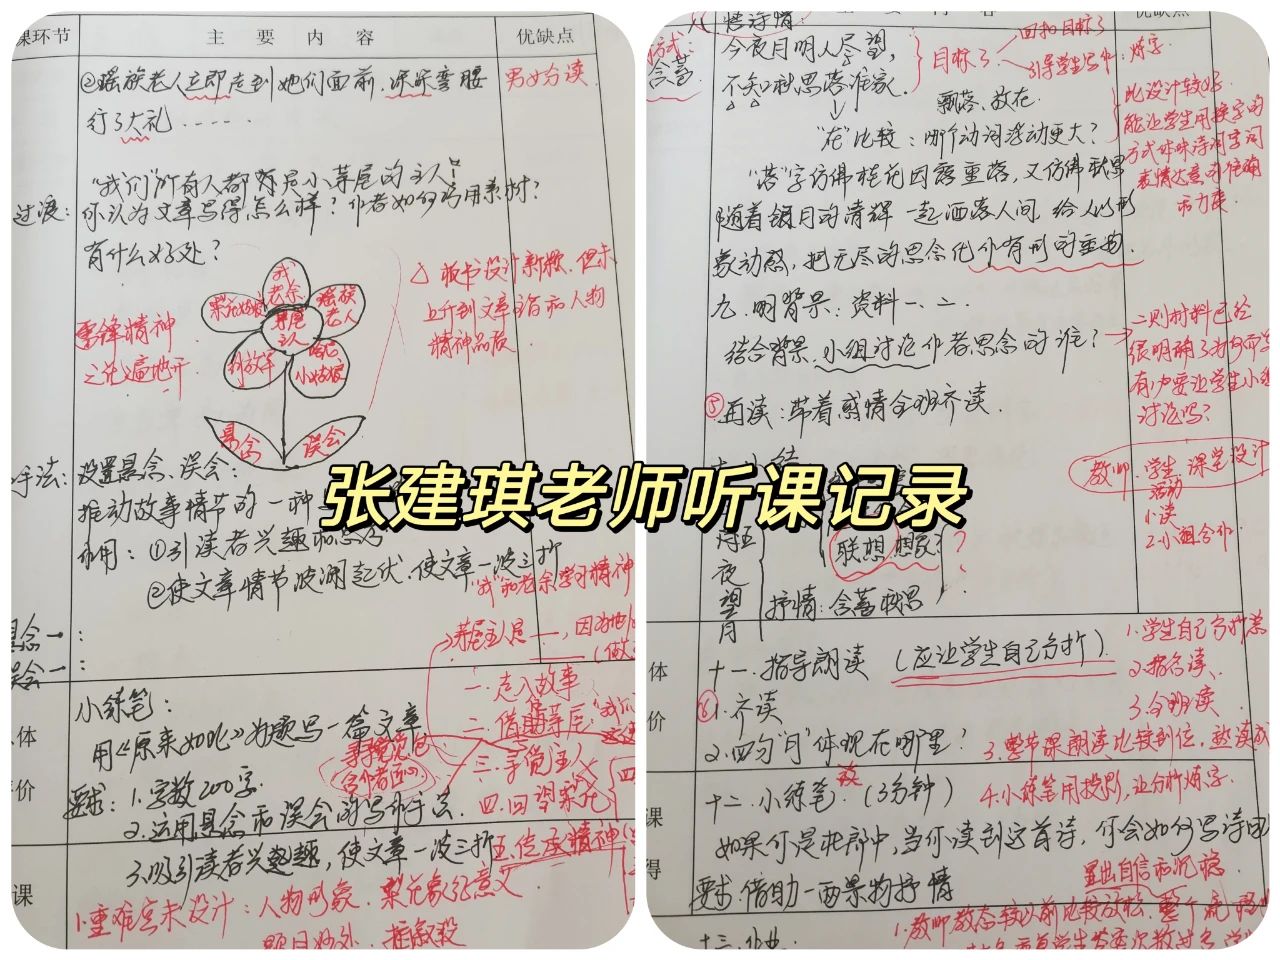 课环节
主 要 内 容
优缺点
②瑶族老人立即走到她们面前,深深弯腰
行了大礼……
男女分读
"我们"所有人都不是小茅屋的主人!
过渡:
你认为文章写得怎么样?作者如何写
有什么好处?
我
老余
梨花妹妹
瑶族
老人
茅屋
主人
解放军
哈尼
小姑娘
悬念
误会
雷锋精神
之花遍地开
△ 板书设计新颖,但未
上升到文章主旨和人物
精神品质
手法:设置悬念、误会:
推动故事情节的一种
作用:①引读者兴趣和思
②使文章情节波澜起伏,使文章一波三折
"我"和老余学习精神
悬念一:
误会一:
茅屋主人是——,因为
小练笔:
用《原来如此》为题写一篇文章
要求:1.字数200字.
2.运用悬念和误会的写作手法
3.吸引读者兴趣,使文章一波三折
一.走入故事
二.借助茅屋
三.寻觅主人
四.回望梨花
五.传承精神
体
价
课
1.重难点未设计:人物形象.梨花象征意义
题目妙处.插叙段
张建琪老师听课记录
主 要 内 容
优缺点
悟诗情:
方式:
含蓄
今夜月明人尽望,
不知秋思落谁家.
目标3
回扣目标3
引导学生写
炼字
飘落、放在
"在"比较:哪个动词浮动更大?
"落"字仿佛桂花因露重落,又仿佛秋思
随着银月的清辉一起洒落人间,给人以形
象动感,把无尽的思念化作有形的重物.
此设计较好,
能让学生用换字的
方式体味诗词字词
表情达意的准确
九.明背景:资料一、二.
结合背景,小组讨论作者思念的谁?
二则材料已经
很明确了为何而
有必要让学生小组
讨论吗?
⑤再读:带着感情全班齐读.
教师
学生
课堂设计
活动
1.读
2.小组合作
十五
夜
望
月
联想 想象?
抒情:含蓄秋思
体
价
课
得
十一.指导朗读(应让学生自己分析)
1.学生自己分析
2.指名读.
3.全班读
⑥1.齐读
2.四句"月"体现在哪里?
3.整节课朗读比较到位,
十二.小练笔.(3分钟)
4.小练笔用投影,让分析炼字.
如果你是杜郎中,当你读到这首诗,你会如何写诗回
要求:借助一两景物抒情
1.教师教态较以前比较放松,整个流
十三.作业